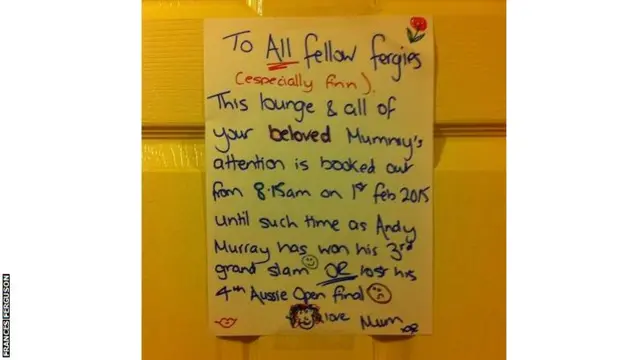 To All fellow fergies
(especially finn).
This lounge & all of
your beloved Mummy's
attention is booked out
from 8.15am on 1st feb 2015
until such time as Andy
Murray has won his 3rd
grand slam OR lost his
4th Aussie Open final
love Mum
FRANCES FERGUSON